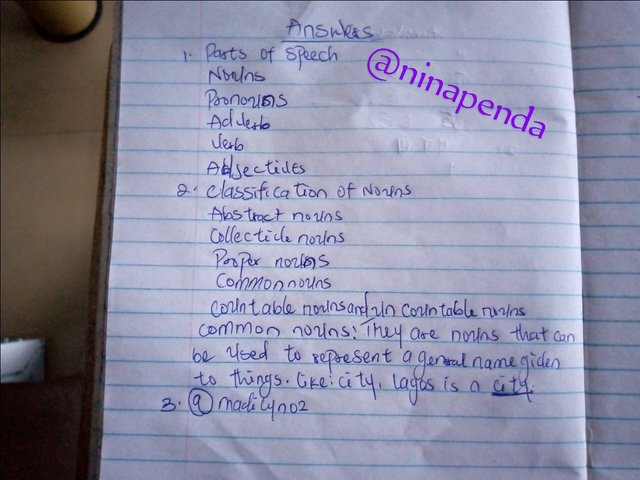 Answers
1. Parts of speech
@ninapenda
Nouns
Pronouns
Adverb
Verb
Adjectives
2. Classification of Nouns
Abstract nouns
Collective nouns
Proper nouns
Common nouns
Countable nouns and/un countable nouns
common nouns: They are nouns that can
be used to represent a general name given
to things. like: city, lagos is a city.
3. @ madilyn02